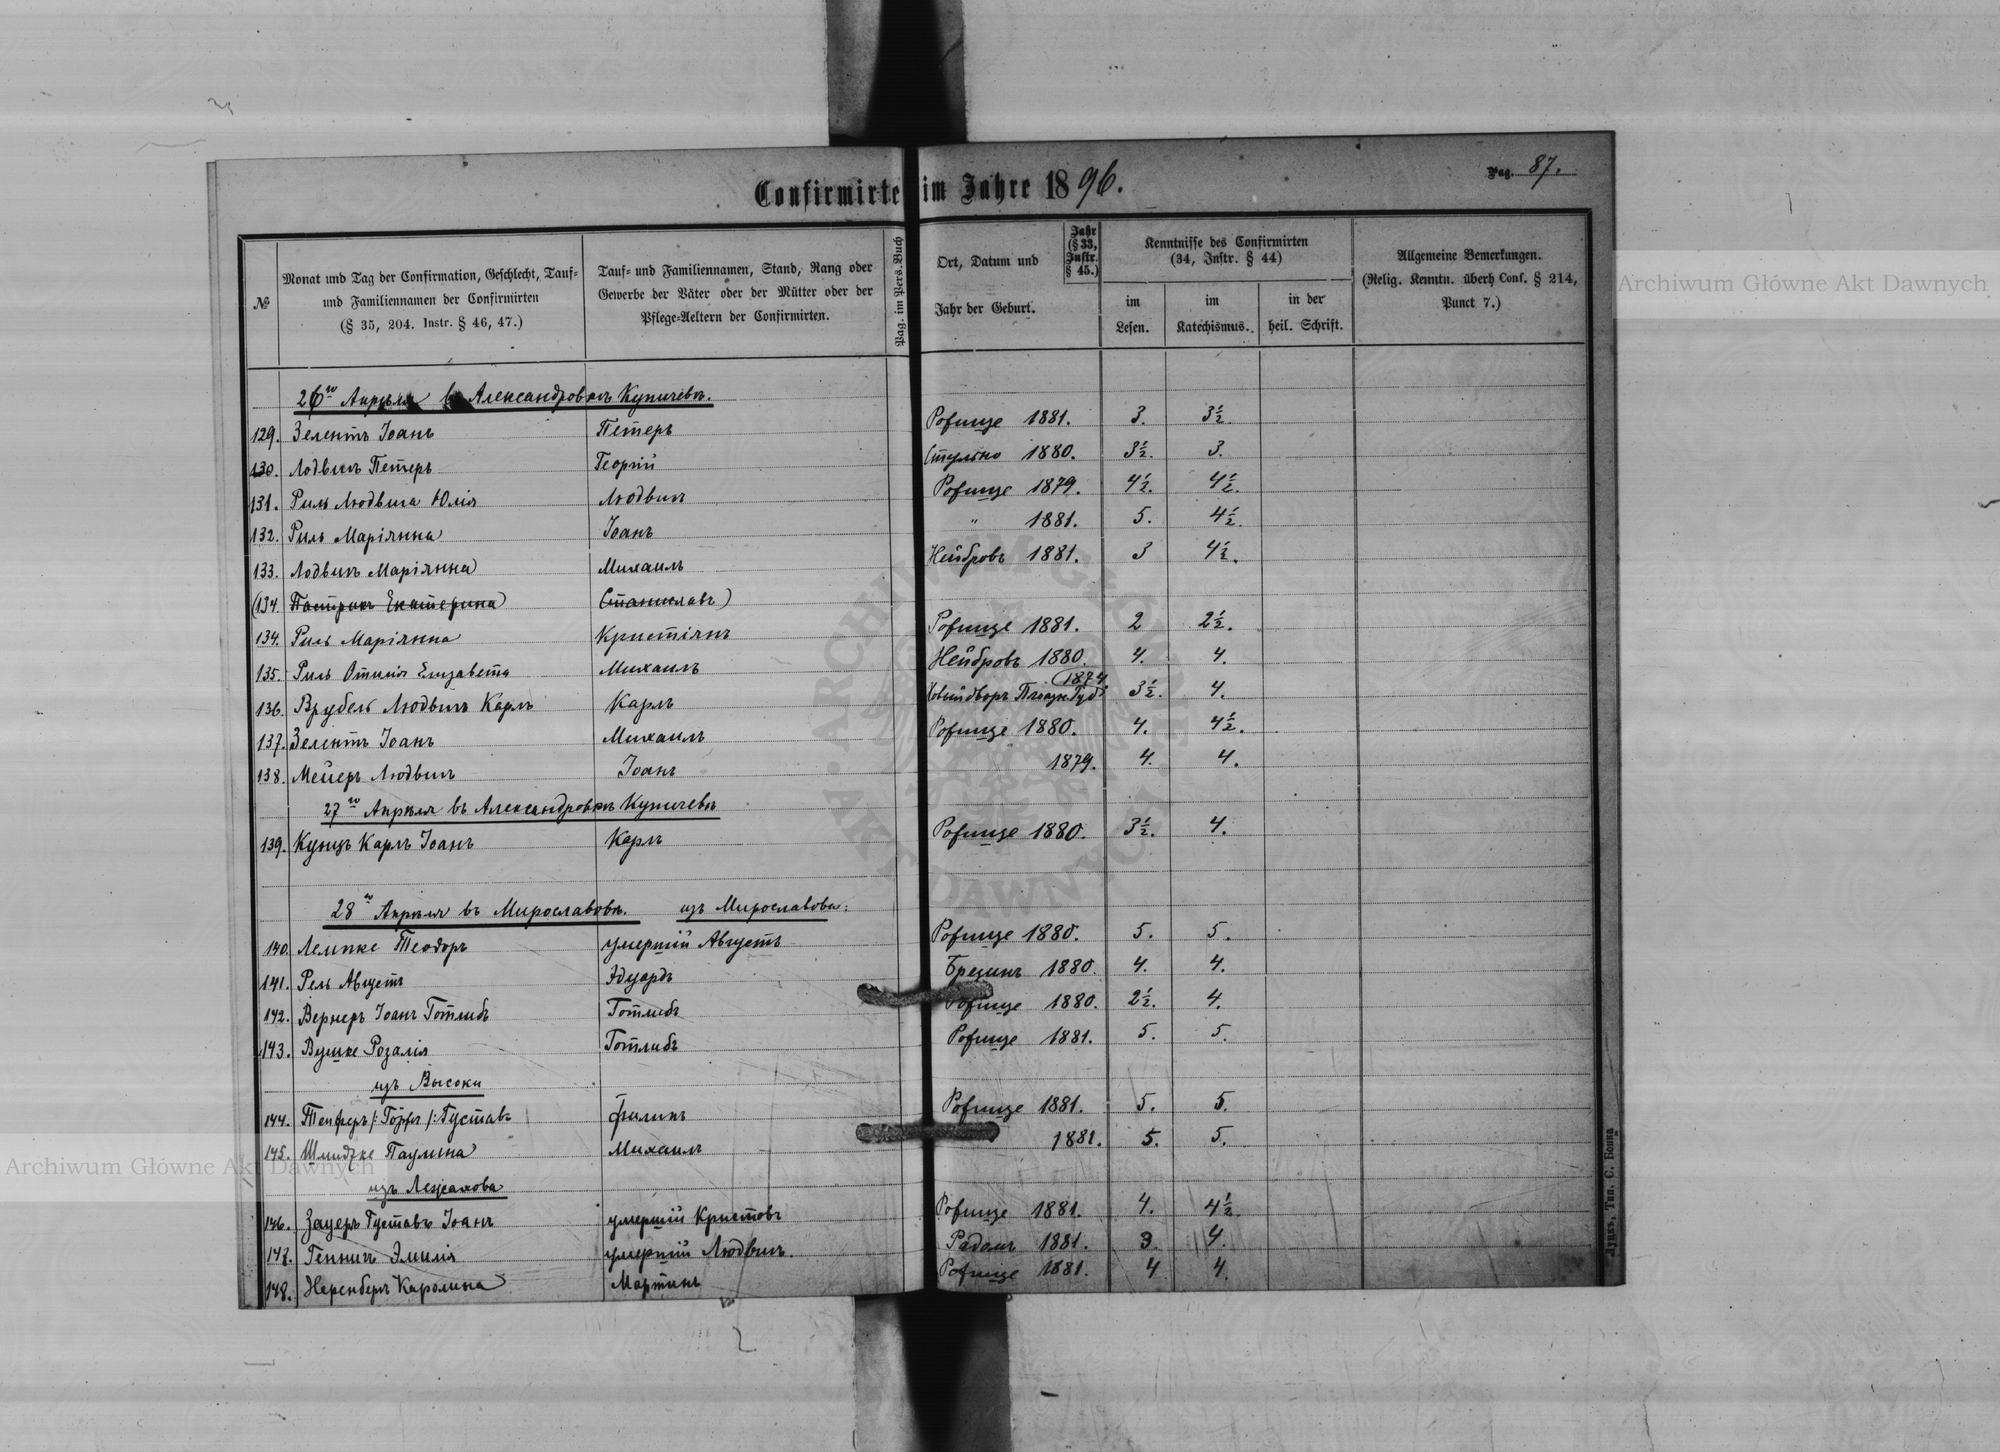 Confirmirte im Jahre 1896.
Pag. 87.
№
Monat und Tag der Confirmation, Geschlecht, Tauf=
und Familiennamen der Confirmirten
(§ 35, 204. Instr. § 46, 47.)
Tauf= und Familiennamen, Stand, Rang oder
Gewerbe der Väter oder der Mütter oder der
Pflege=Aeltern der Confirmirten.
Pag. im Pers. Buch
Ort, Datum und
Jahr der Geburt.
Jahr
(§ 33,
Instr.
§ 45.)
Kenntnisse des Confirmirten
(34, Instr. § 44)
im
Lesen.
im
Katechismus.
in der
heil. Schrift.
Allgemeine Bemerkungen.
(Relig. Kenntn. überh Conf. § 214,
Punct 7.)
26го Апрѣля въ Александровкѣ Купичевѣ.
129. Зелентъ Іоанъ Петеръ Рожище 1881. 3. 3½
130. Лодвикъ Петеръ Георгій 1880. 3½. 3.
131. Риль Людвига Юлія Людвикъ Рожище 1879. 4½. 4½.
132. Риль Маріянна Іоанъ " 1881. 5. 4½.
133. Лодвикъ Маріянна Михаилъ Нейбровъ 1881. 3 4½.
(134. Екатерина Станиславъ)
134. Риль Маріянна Кристіянъ Рожище 1881. 2 2½.
135. Риль Отилія Елизавета Михаилъ Нейбровъ 1880. 4. 4.
136. Врубель Людвикъ Карлъ Карлъ Новыйдворъ 1874 3½. 4.
137. Зелентъ Іоанъ Михаилъ Рожище 1880. 4. 4½.
138. Мейеръ Людвикъ Іоанъ 1879. 4. 4.
27го Апрѣля въ Александровкѣ Купичевѣ
139. Кунцъ Карлъ Іоанъ Карлъ Рожище 1880. 3½. 4.
28го Апрѣля въ Мирославовкѣ. изъ Мирославовки:
140. Лемпке Теодоръ умершій Августъ Рожище 1880. 5. 5.
141. Рель Августъ Эдуардъ Брезинъ 1880. 4. 4.
142. Вернеръ Іоанъ Готлибъ Готлибъ Рожище 1880. 2½. 4.
143. Вушке Розалія Готлибъ Рожище 1881. 5. 5.
изъ Высоки
144. Густавъ Филипъ Рожище 1881. 5. 5.
145. Шмидтке Паулина Михаилъ 1881. 5. 5.
146. Зауеръ Густавъ Іоанъ умершій Кристофъ Рожище 1881. 4. 4½
147. Геннигъ Эмилія умершій Людвикъ. Радомъ 1881. 3. 4.
148. Каролина Мартинъ Рожище 1881. 4 4.
Луцкъ, Тип. С. Бонка
Archiwum Główne Akt Dawnych
Archiwum Główne Akt Dawnych
ARCHIWUM GŁÓWNE AKT DAWNYCH